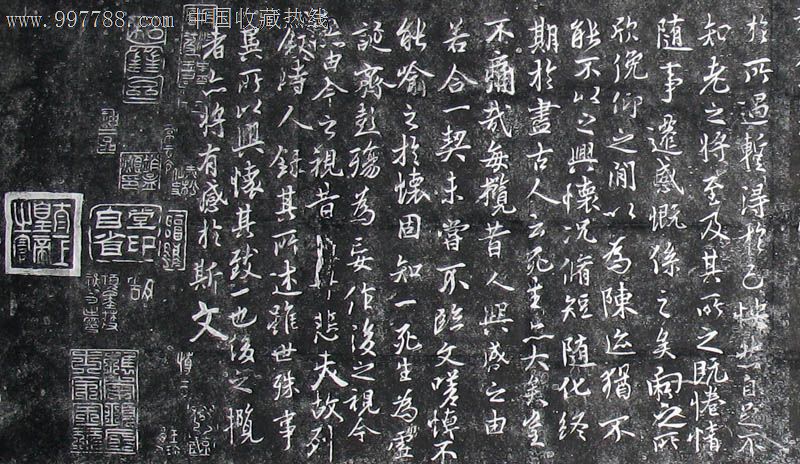 www.997788.com 中国收藏热线
於所遇暫得於己快然自足不
知老之將至及其所之既惓情
随事遷感慨係之矣向之所
欣俛仰之閒以為陳迹猶不
能不以之興懷况脩短随化終
期於盡古人云死生亦大矣豈
不痛哉每攬昔人興感之由
若合一契未嘗不臨文嗟悼不
能喻之於懷固知一死生為虛
誕齊彭殤為妄作後之視今
亦由今之視昔悲夫故列
叙時人録其所述雖世殊事
異所以興懷其致一也後之攬
者亦將有感於斯文